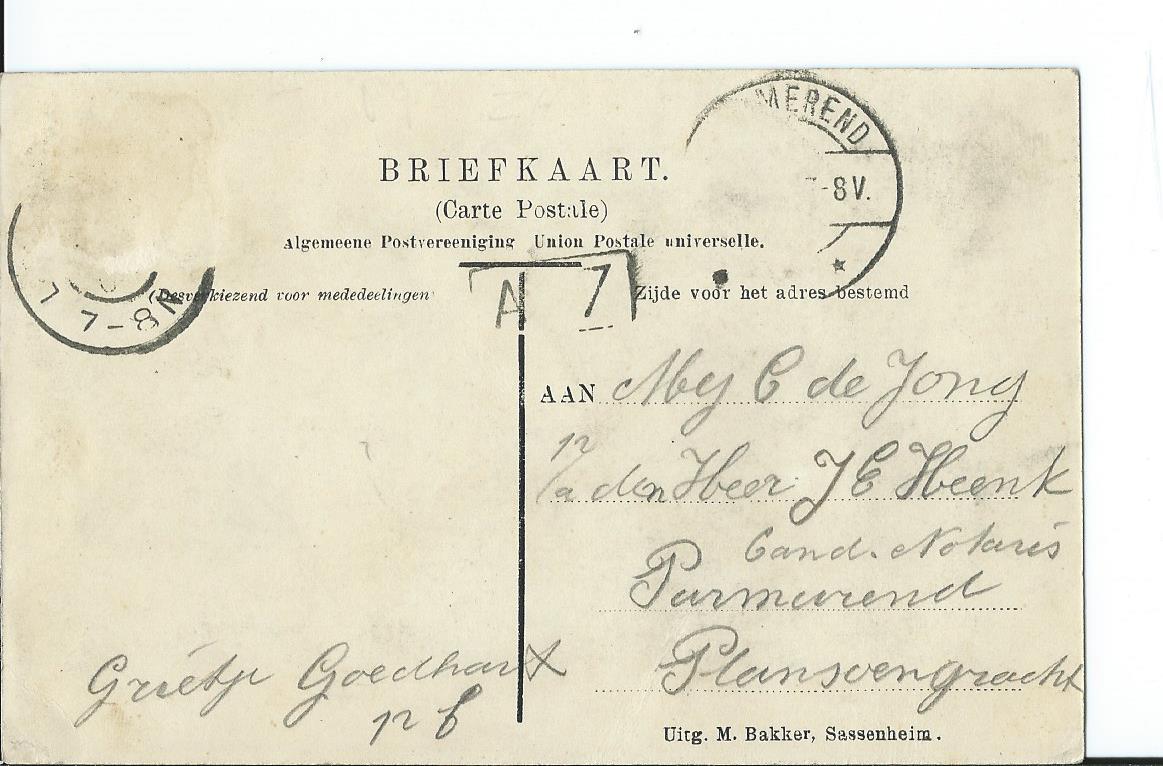 MEREND
-8V.
BRIEFKAART.
(Carte Postale)
Algemeene Postvereeniging Union Postale universelle.
7-8N
(Desverkiezend voor mededeelingen
Zijde voor het adres bestemd
A 7
AAN Mej C de Jong
p/a den Heer J E Heenk
Cand. Notaris
Purmerend
Plansoengracht
Grietje Goedhart
p f
Uitg. M. Bakker, Sassenheim.